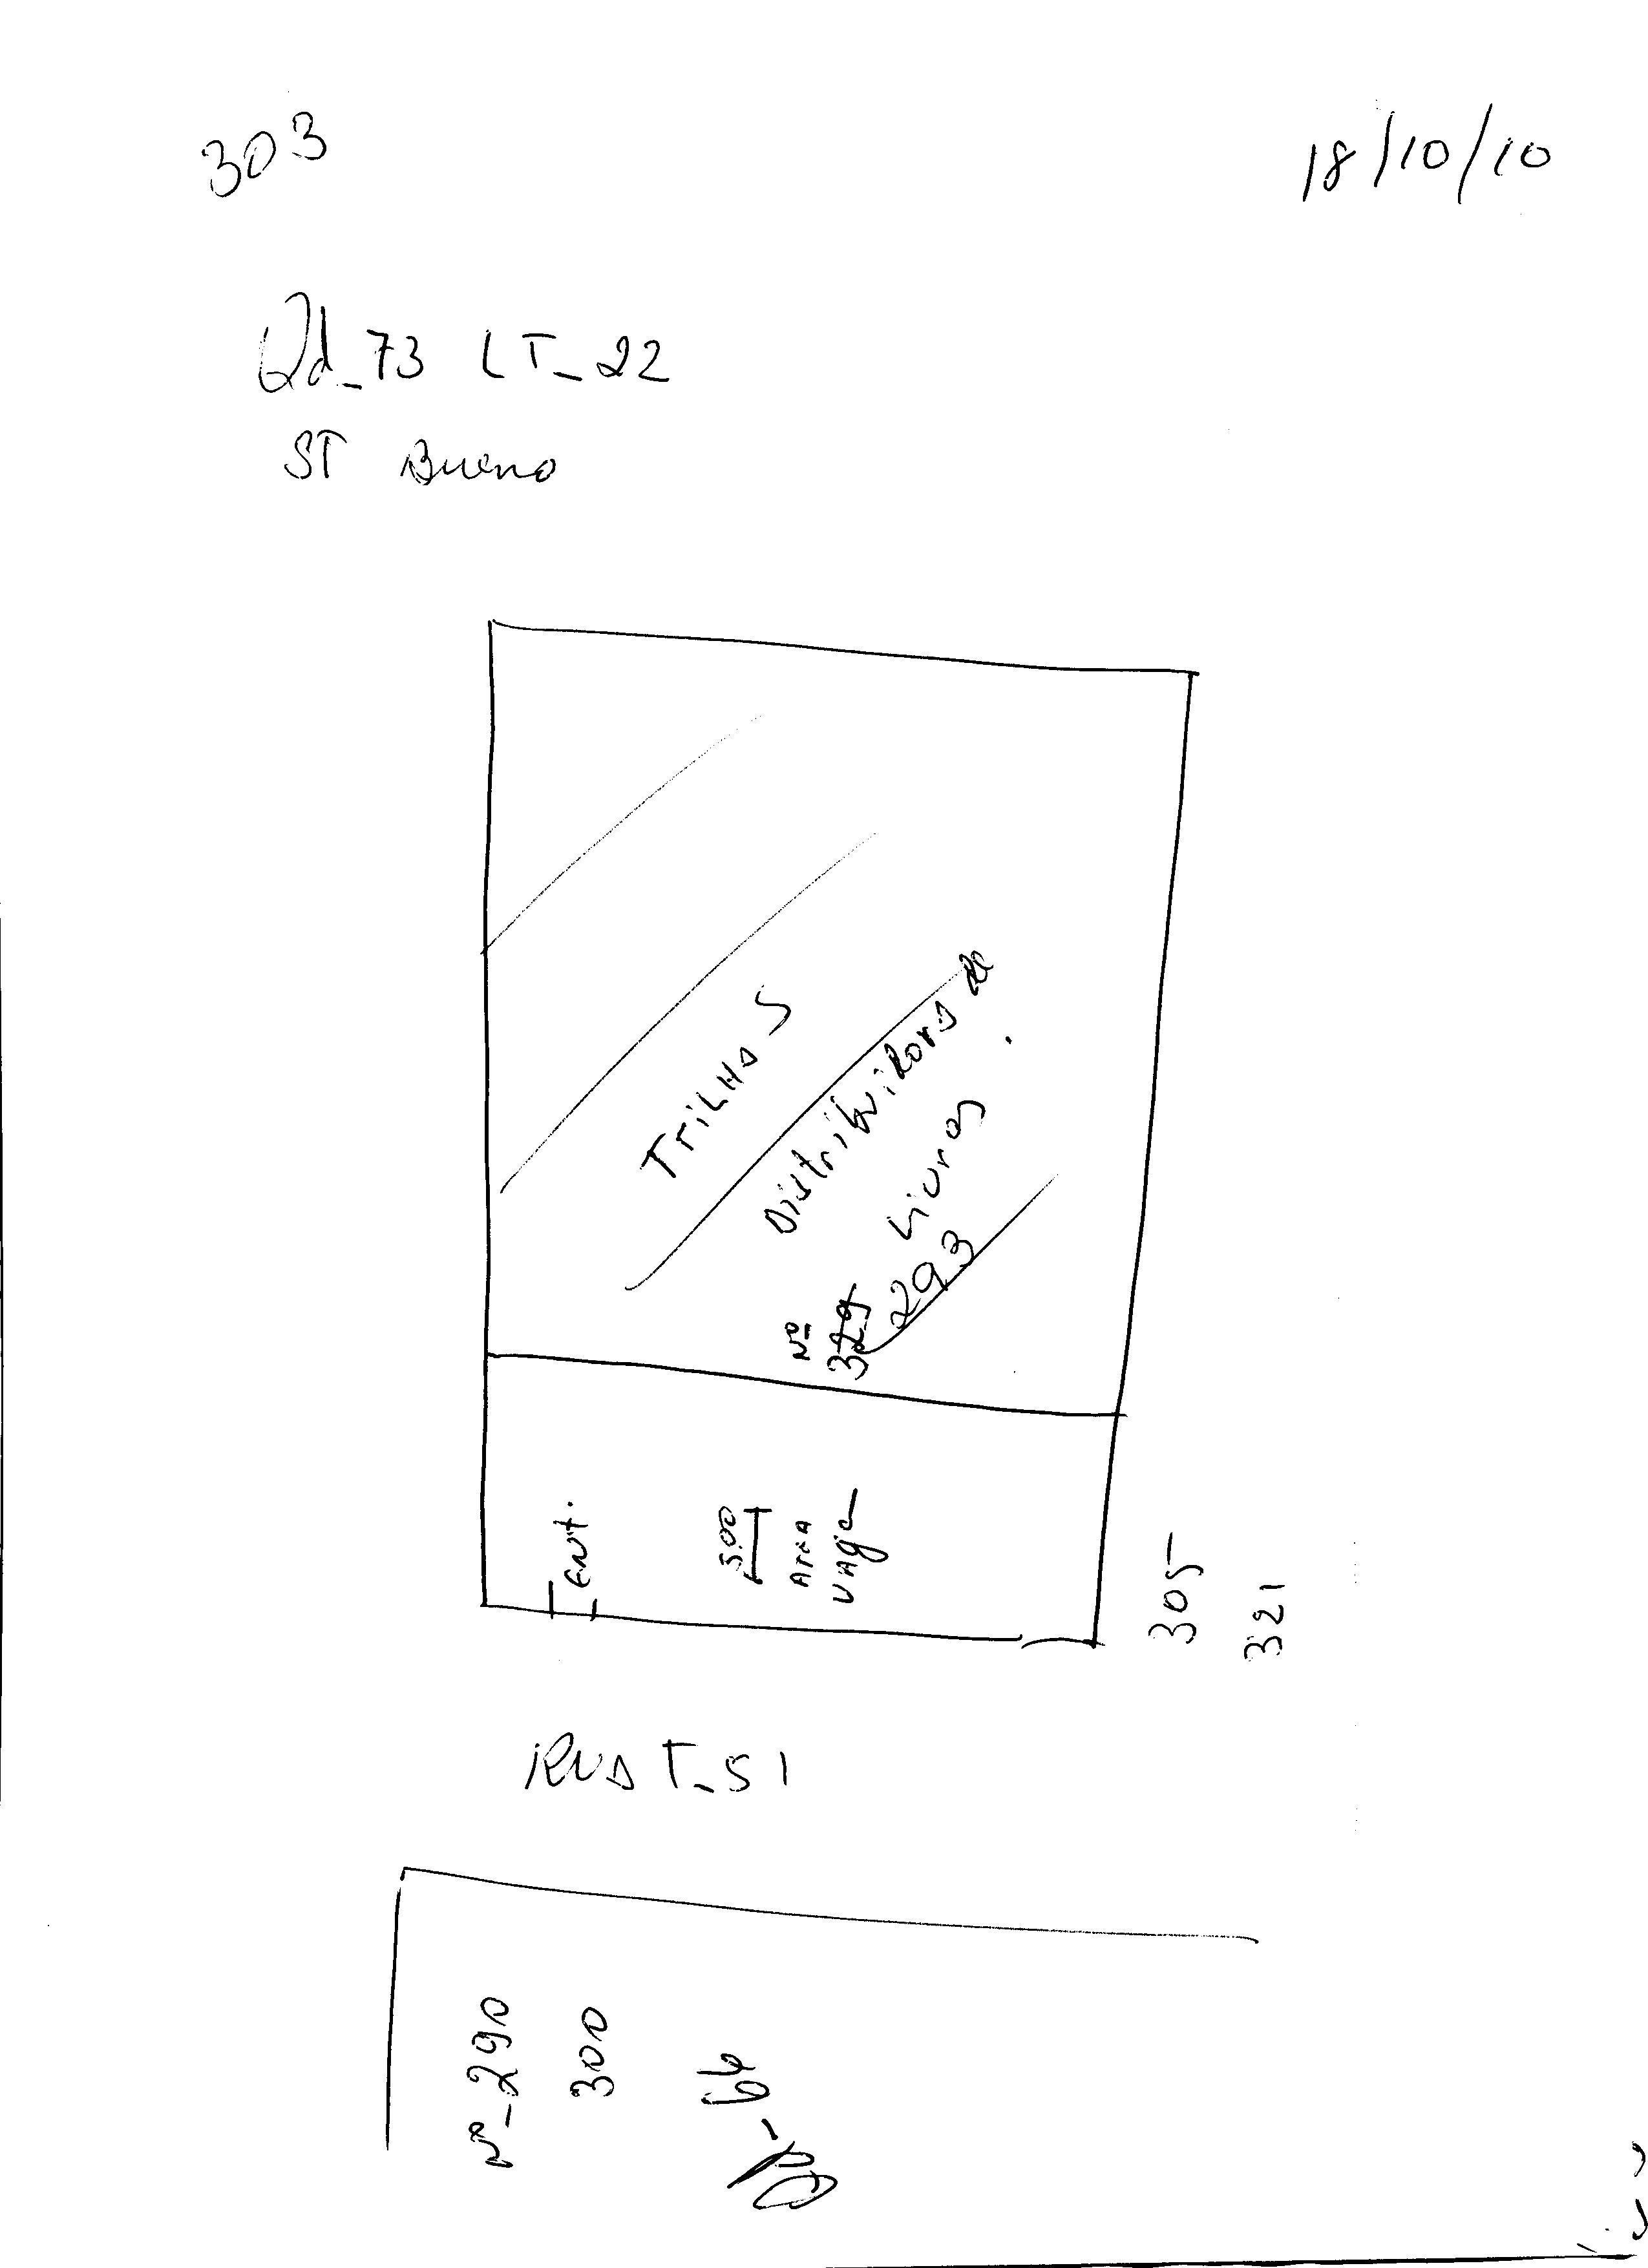 303
18/10/10
Qd_73 LT_22
ST Bueno
TriLHOS
Distribuidora de
Livros
Nº
329 293
Ent.
5.00
Area
Vaga
305
321
RUA T_51
Nº_290
300
Qd_64